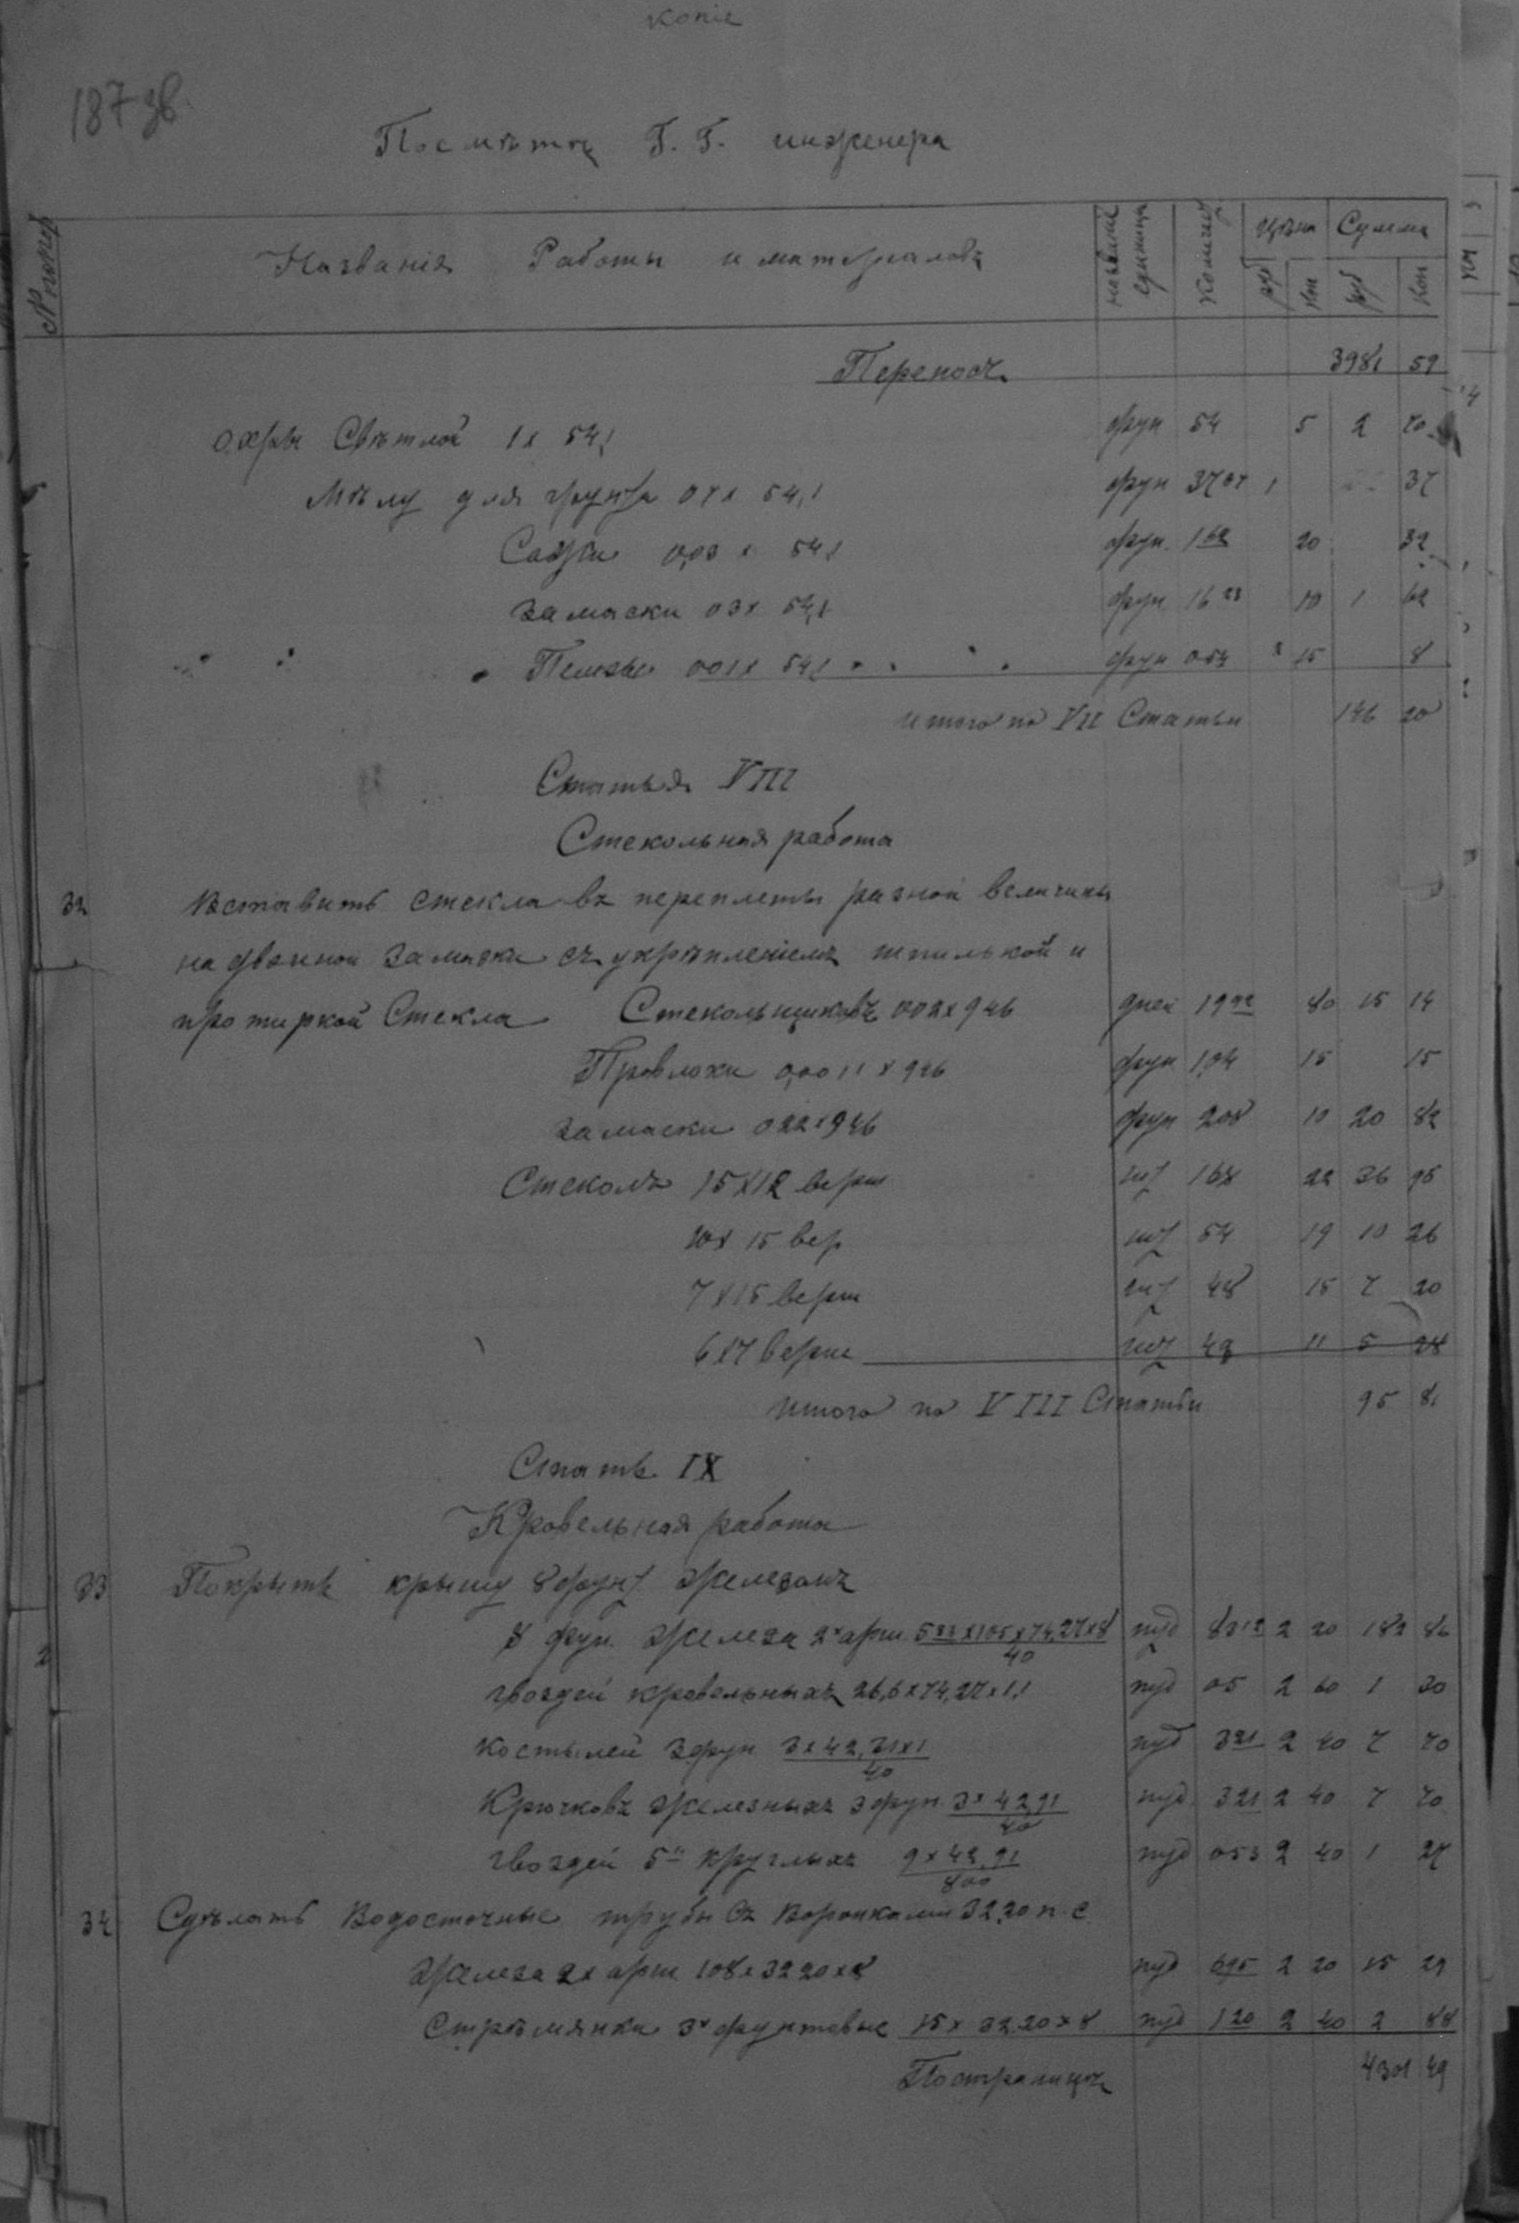 копіе
187 зв.
По смѣтѣ Г. Г. инженера
№ покор
Названія Работы и матерьаловъ
названіе единицъ
Количес
цѣна
Сумма
руб
коп
руб
Коп
Переносъ 3981 59
Охры Свѣтлой 1 х 54,1 фун 54 5 2 70
Мѣлу для грунта 07 х 54,1 фун 37 87 1 37
Сажи 0,03 х 54,1 фун. 1 62 20 32
Замаски 03 х 54,1 фун 16 23 10 1 62
Пемзы 001 х 54,1 фун 054 15 8
итого по VII Статьи 146 20
Статья VIII
Стекольная работа
32 Вставить стекла въ переплеты разной величины
на двойной Замазки съ укрѣпленіемъ шпилькой и
протиркой Стекла Стекольщиковъ 002 х 946 дней 19 92 80 15 14
Провлоки 0,0011 х 946 фун 1,04 15 15
Замаски 022 х 946 фун 208 10 20 82
Стеколъ 15 х 12 верш шт 168 22 36 96
10 х 15 вер шт 54 19 10 26
7 х 15 верш шт 48 15 7 20
6 х 7 верш шт 48 11 5 28
Итого по VIII Статьи 95 81
Стать IX
Кровельная работа
33 Покрыть крышу 8 фунт Железомъ
8 фун. Железа 2х арш 5 33 х 105 х 74,27 х 8 / 40 пуд 83 12 2 20 182 86
гвоздей кровельныхъ 26,6 х 74,27 х 1,1 пуд 05 2 60 1 30
Костылей 3 фун 3 х 42,91 х 1 / 40 пуд 321 2 40 7 70
Крючковъ Железныхъ 3 фун. 3 х 42,91 / 40 пуд. 321 2 40 7 70
гвоздей 5" круглыхъ 9 х 42,91 / 800 пуд 053 2 40 1 27
34 Сдѣлать Водосточные трубы Съ Воронками 32,20 п. с.
Железа 2х арш 108 х 32 20 х 8 пуд 695 2 20 15 29
Стрѣмянки 3х фунтовые 15 х 32.20 х 8 пуд 1 20 2 40 2 88
Пострамицъ 4301 49